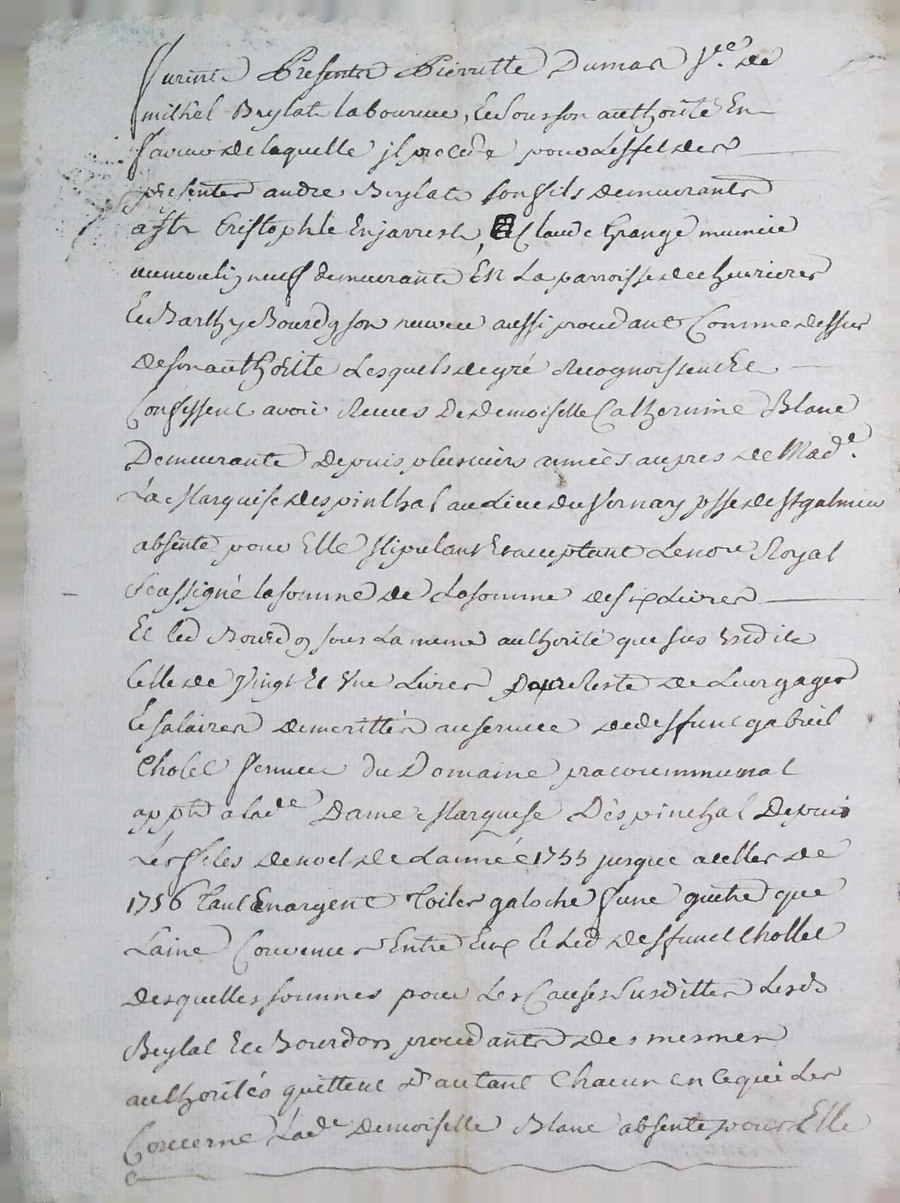 furent Presents Pierrette Dumas f.ee de
michel Beylat laboureur, Et de son authorité En
faveur de laquelle jl procede pour Leffet des
presentes andre Beylat son fils demeurants
a st Cristophle En jarrest, Claude Grange munier
au moulin neuf demeurant En La parroisse de chevrieres
Et Barthy Bourdon son neveu aussi procedant Comme dessus
de son authorité Lesquels de gré Recognoissent Et
Confessent avoir Receues De Demoiselle Catherinne Blanc
Demeurante depuis plusieurs années aupres de Mad.e
La Marquise despinchal au Lieu du Vernay psse de St galmier
absente pour Elle stipulant Et acceptant Le no.re Royal
soussigné la somme de La somme de six Livres
Et led Bourdon sous La meme authorité que sus Est dit
Celle de Vingt Et Une Livres Reste de Leur gages
Et salaires demerittés au service de deffunt gabriel
Cholet fermier du Domaine
app.t a lad.e Dame Marquise Déspinchal Depuis
Les fetes de noel de Lannée 1755 jusque a celles de
1756 tant En argent Toiles galoche que
Laine Convenus Entre Eux Et Led deffunt Chollet
desquelles sommes pour Les Causes Susdittes Lesds
Beylat Et Bourdon procedants des mesmes
authorités quittent D'autant Chacun En ce qui Les
Concerne Lad.e Demoiselle Blanc absente pour Elle